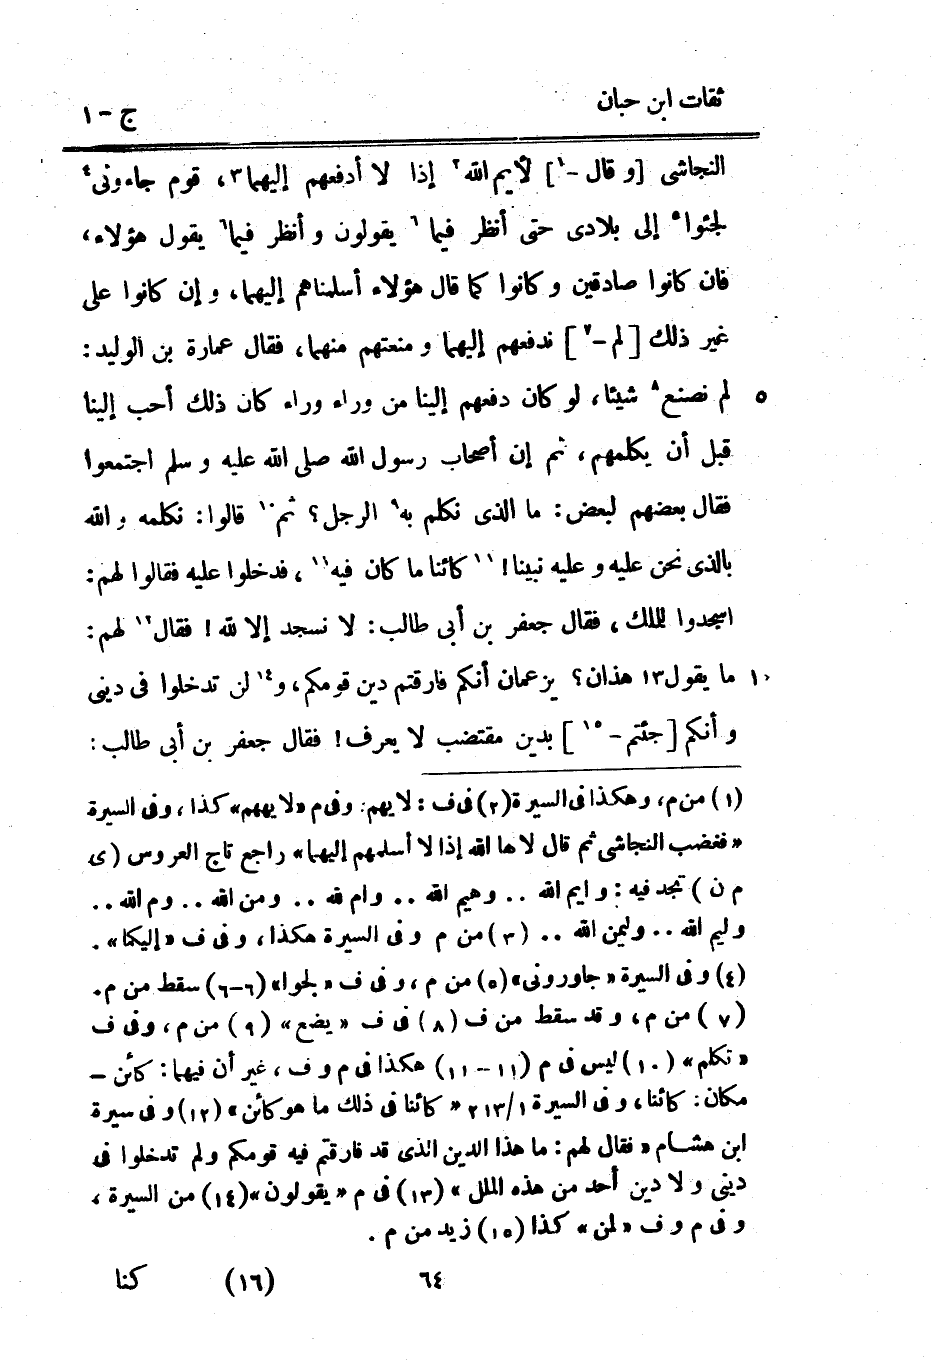 ثقات ابن حبان
ج - ١
النجاشى [و قال -١] لأيم الله٢ إذا لا أدفعهم إليهما٣، قوم جاءونى٤
لجئوا٥ إلى بلادى حتى أنظر فيما ٦ يقولون و أنظر فيما٦ يقول هؤلاء،
فان كانوا صادقين و كانوا كما قال هؤلاء أسلمناهم إليهما، و إن كانوا على
غير ذلك [لم -٧] ندفعهم إليهما و منعتهم منهما، فقال عمارة بن الوليد:
٥ لم نصنع٨ شيئا، لو كان دفعهم إلينا من وراء وراء كان ذلك أحب إلينا
قبل أن يكلمهم، ثم إن أصحاب رسول الله صلى الله عليه و سلم اجتمعوا
فقال بعضهم لبعض: ما الذى نكلم به٩ الرجل؟ ثم١٠ قالوا: نكلمه و الله
بالذى نحن عليه و عليه نبينا! ١١ كائنا ما كان فيه١١، فدخلوا عليه فقالوا لهم:
اسجدوا للملك، فقال جعفر بن أبى طالب: لا نسجد إلا لله! فقال١٢ لهم:
١٠ ما يقول١٣ هذان؟ يزعمان أنكم فارقتم دين قومكم، و١٤ لن تدخلوا فى دينى
و أنكم [جئتم -١٥] بدين مقتضب لا يعرف! فقال جعفر بن أبى طالب:
(١) من م، وهكذا فى السيرة (٢) فى ف: لايهم، وفى م «لايههم» كذا، وفى السيرة
«فغضب النجاشى ثم قال لا ها الله إذا لا أسلمهم إليهما» راجع تاج العروس (ى
م ن) تجد فيه: و ايم الله .. وهيم الله .. وام لله .. ومن الله .. وم الله ..
وليم الله .. وليمن الله .. (٣) من م وفى السيرة هكذا، و فى ف «إليكما».
(٤) و فى السيرة «جاورونى» (٥) من م، و فى ف «لجوا» (٦-٦) سقط من م.
(٧) من م، و قد سقط من ف (٨) فى ف «يضع» (٩) من م، وفى ف
«تكلم» (١٠) ليس فى م (١١-١١) هكذا فى م و ف، غير أن فيهما: كائن -
مكان: كائنا، و فى السيرة ٢١٣/١ «كائنا فى ذلك ما هو كائن» (١٢) و فى سيرة
ابن هشام «فقال لهم: ما هذا الدين الذى قد فارقتم فيه قومكم ولم تدخلوا فى
دينى و لا دين أحد من هذه الملل» (١٣) فى م «يقولون» (١٤) من السيرة،
و فى م و ف «لمن» كذا (١٥) زيد من م.
٦٤ (١٦) كنا